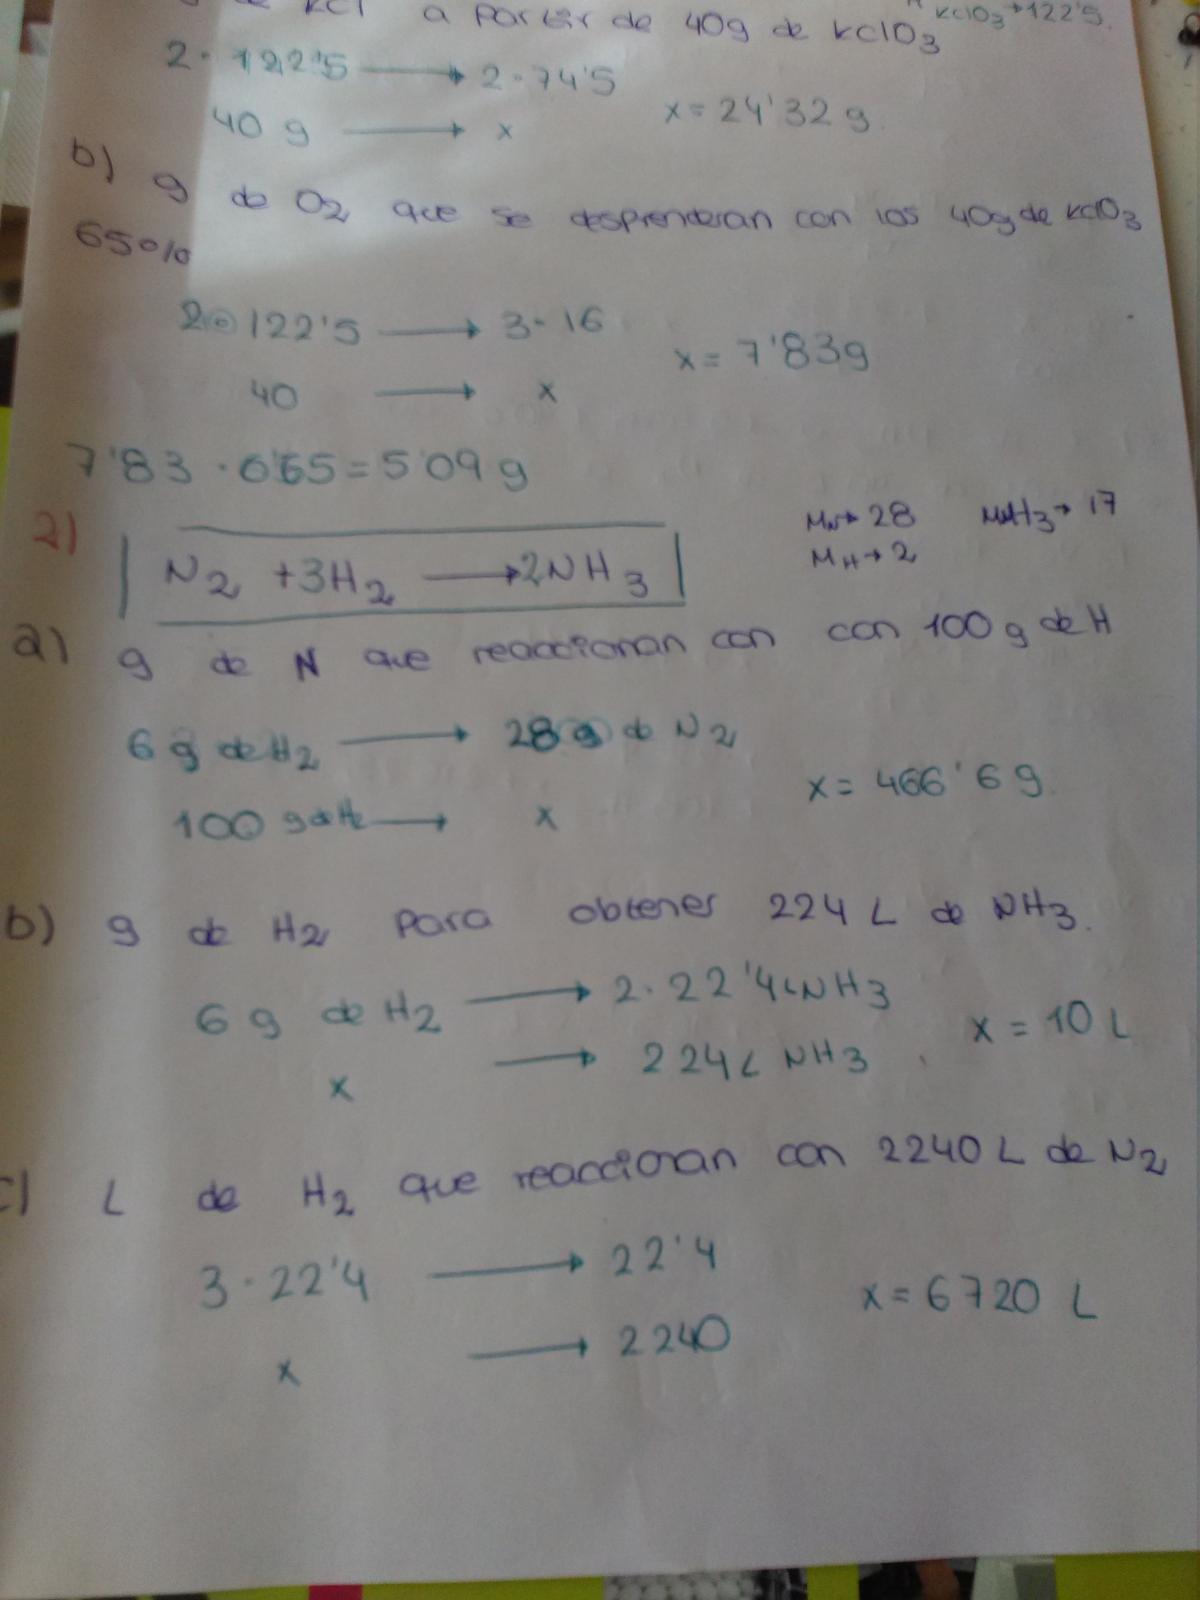 KCl a partir de 40g de KClO3 KClO3→122'5.
2·122'5 → 2·74'5
40 g → x x=24'32 g.
b) g de O2 que se desprenderan con los 40g de KClO3
65%
2·122'5 → 3·16
40 → x x=7'83g
7'83·0'65=5'09 g
2) N2 +3H2 → 2NH3
MN→28 MNH3→17
MH→2
a) g de N que reaccionan con con 100g de H
6 g de H2 → 28 g de N2
100 g de H2 → x x=466'6 g.
b) g de H2 para obtener 224 L de NH3.
6 g de H2 → 2·22'4L NH3
x → 224L NH3 x=10 L
c) L de H2 que reaccionan con 2240 L de N2
3·22'4 → 22'4
x → 2240 x=6720 L